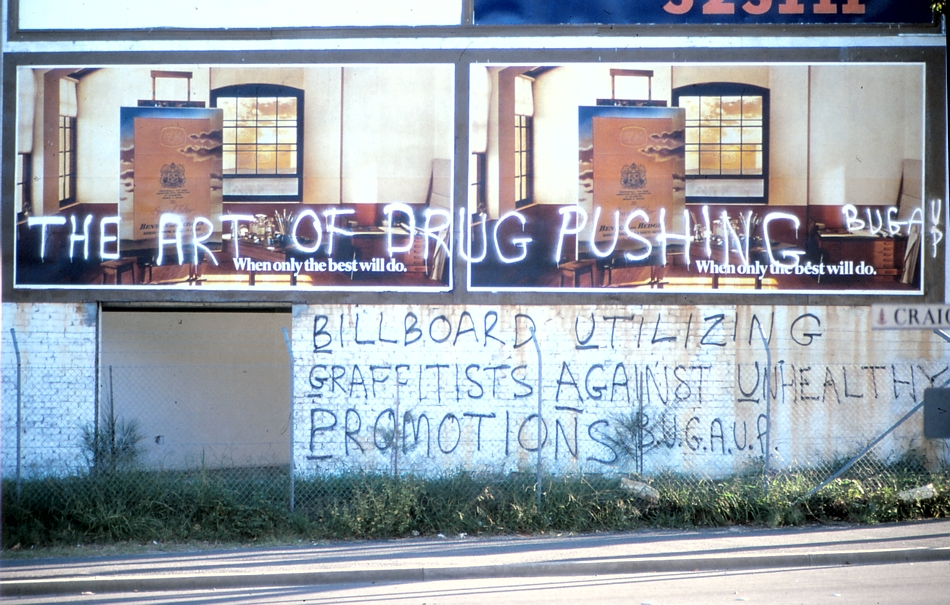 THE ART OF DRUG PUSHING BUGAUP
When only the best will do.
When only the best will do.
CRAIG
BILLBOARD UTILIZING
GRAFFITISTS AGAINST UNHEALTHY
PROMOTIONS B.U.G.A.U.P.